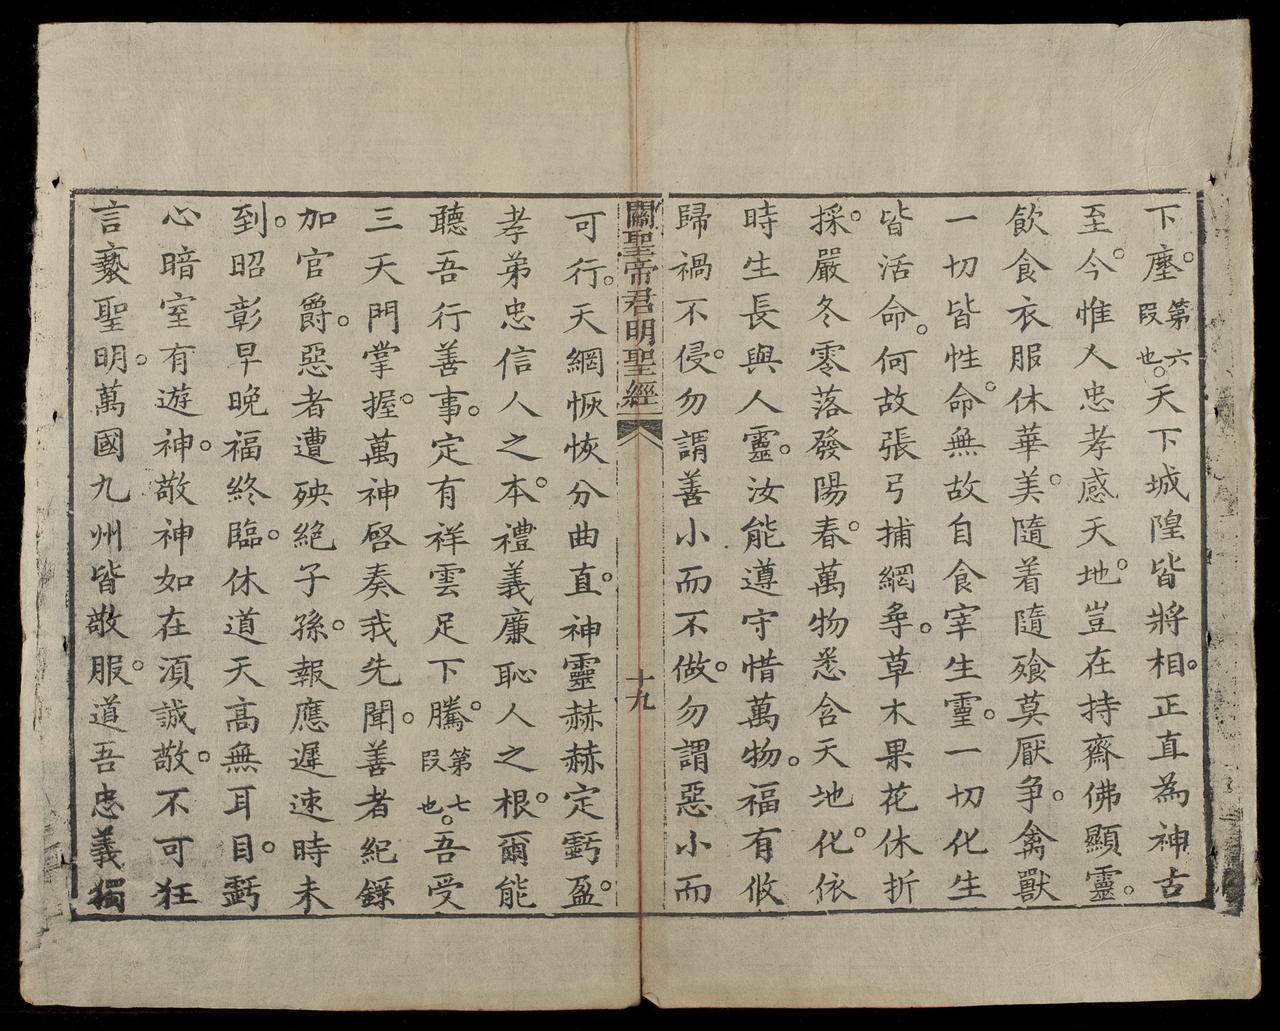 下塵。第六段也。天下城隍皆將相。正直為神古
至今。惟人忠孝感天地。豈在持齋佛顯靈。
飲食衣服休華美。隨着隨飱莫厭争。禽獸
一切皆性命。無故自食宰生靈。一切化生
皆活命。何故張弓捕網尋。草木果花休折
採。嚴冬零落發陽春。萬物悉含天地化。依
時生長與人靈。汝能遵守惜萬物。福有攸
歸禍不侵。勿謂善小而不做。勿謂惡小而
關聖帝君明聖經
十九
可行。天網恢恢分曲直。神靈赫赫定虧盈。
孝弟忠信人之本。禮義廉恥人之根。爾能
聽吾行善事。定有祥雲足下騰。第七段也。吾受
三天門掌握。萬神啓奏我先聞。善者紀錄
加官爵。惡者遭殃絕子孫。報應遲速時未
到。昭彰早晚福終臨。休道天高無耳目。虧
心暗室有遊神。敬神如在湏誠敬。不可狂
言褻聖明。萬國九州皆敬服。道吾忠義獨